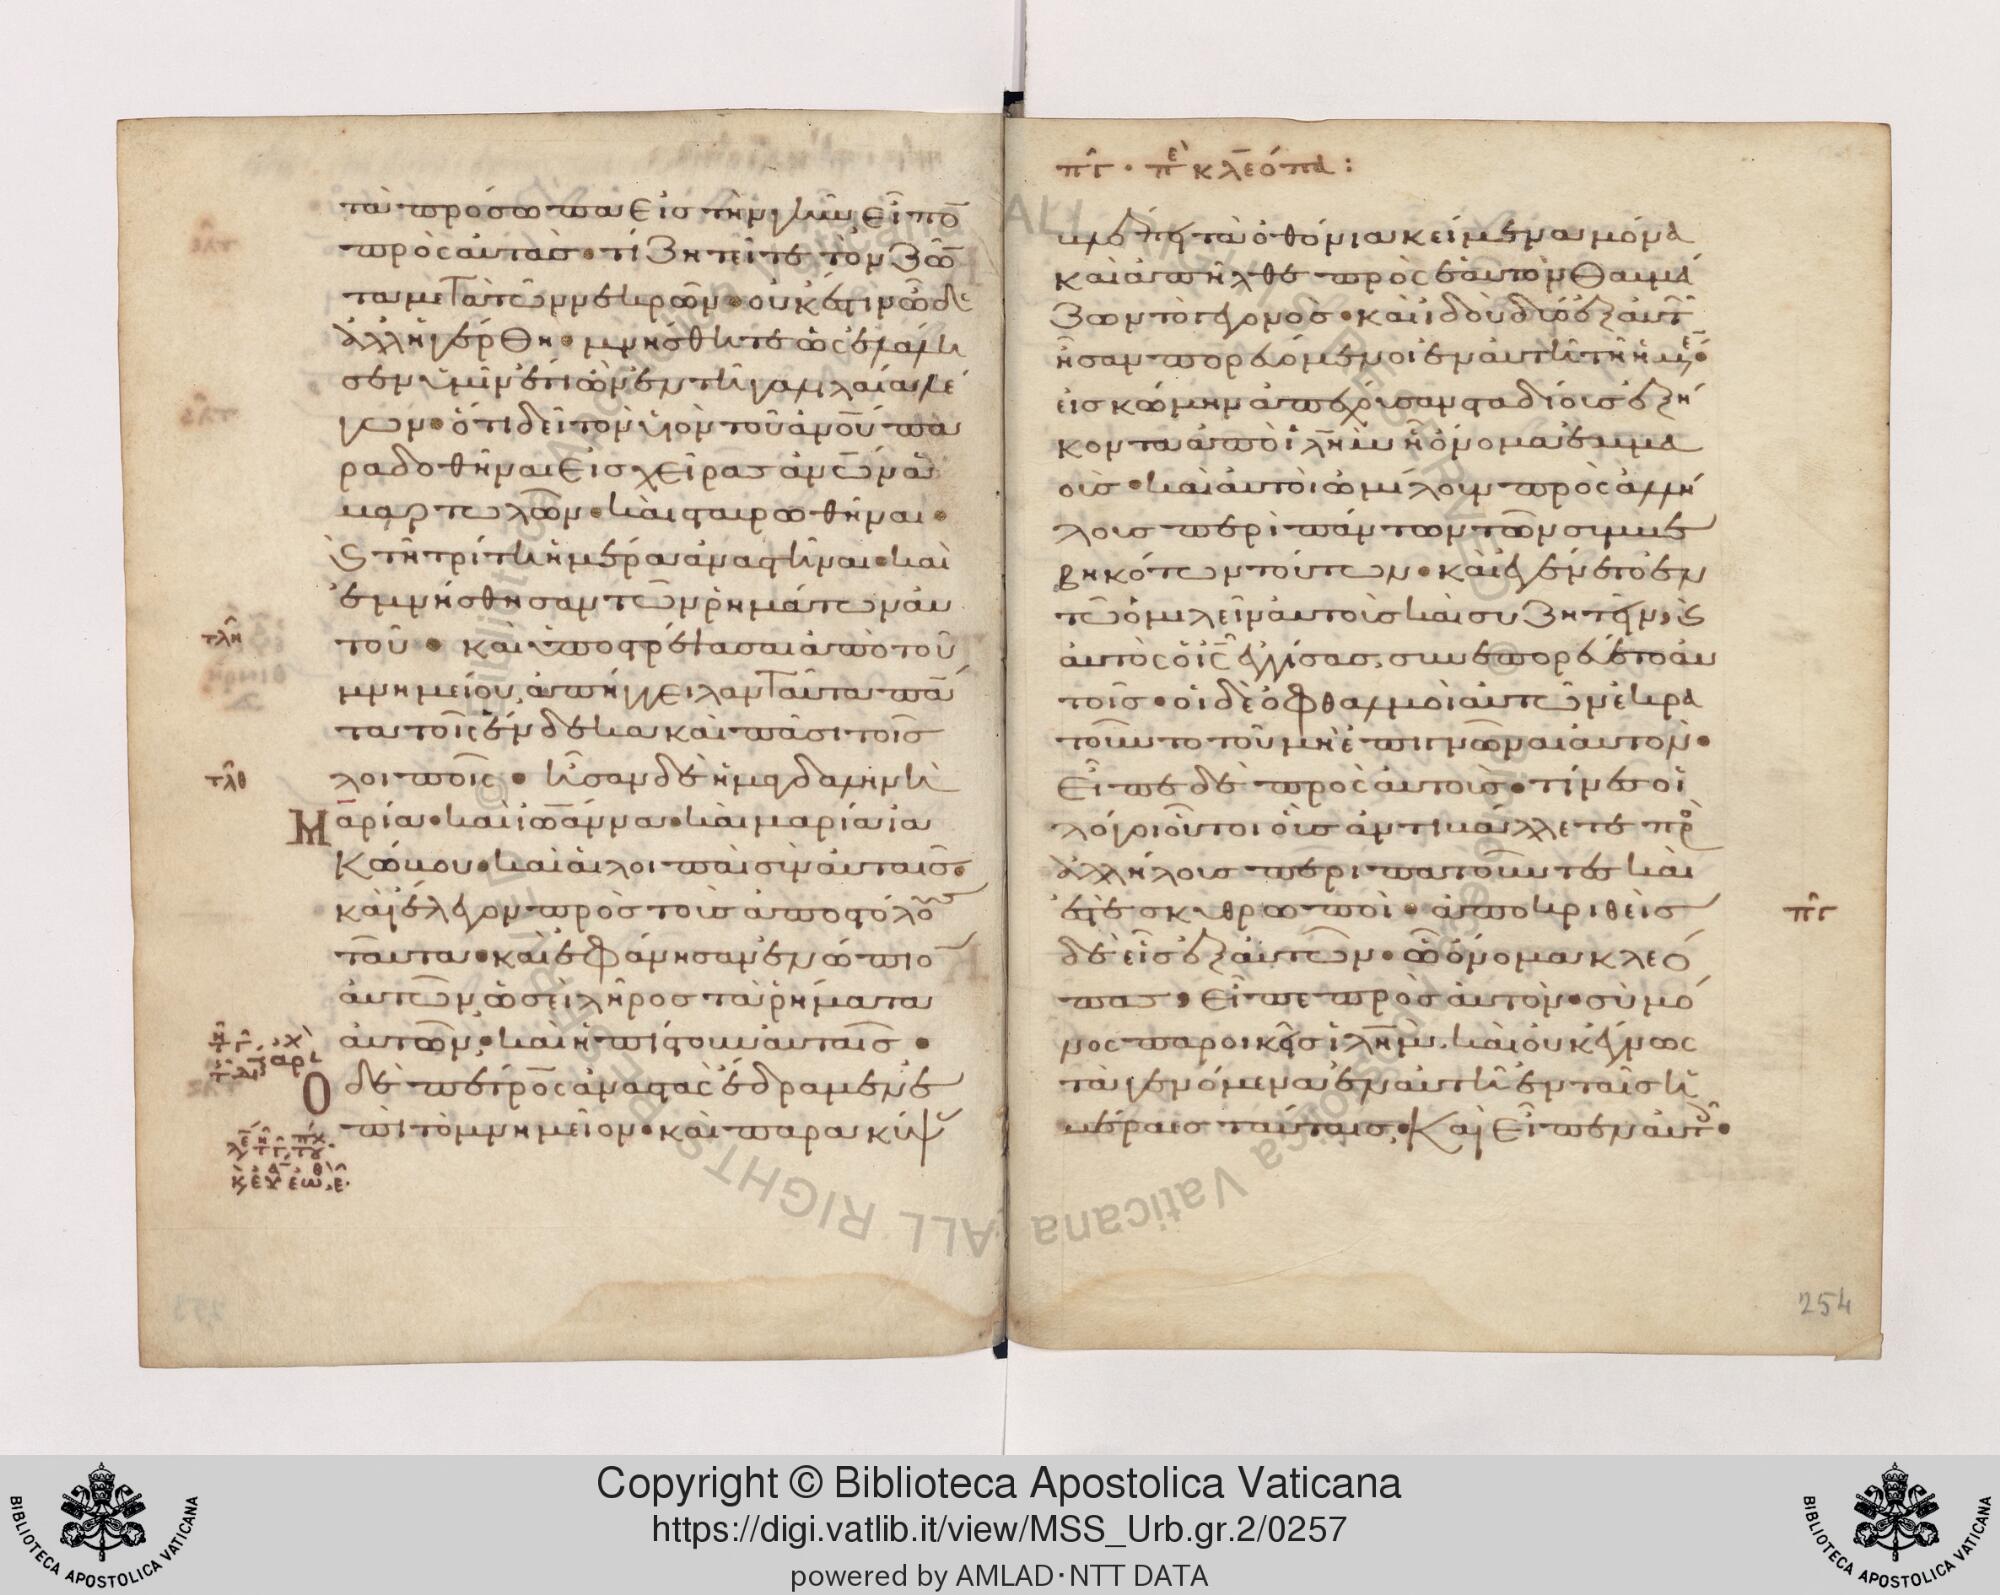 τὰ πρόσωπα εἰς τὴν γῆν εἶπο̅
πρὸς αὐτάς · τί ζητεῖτε τὸν ζῶ̅
τα μετὰ τῶν νεκρῶν · οὐκ ἔστιν ὧδε
ἀλλ ἠγέρθη · μνήσθητε ὡς ἐλάλη
σεν ὑμῖν ἔτι ὢν ἐν τῆ γαλιλαία λέ
γων · ὅτι δεῖ τὸν υἱὸν τοῦ ἀνου πα
ραδοθῆναι εἰς χεῖρας ἀνων ἁ
μαρτωλῶν · καὶ σταυρωθῆναι ·
καὶ τῆ τρίτη ἡμέρα ἀναστῆναι · καὶ
ἐμνήσθησαν τῶν ῥημάτων αὐ
τοῦ · καὶ ὑποστρέψασαι ἀπὸ τοῦ
τλη
μνημείου, ἀπήγγειλαν ταῦτα πά
τα τοῖς ἕνδεκα καὶ πᾶσι τοῖς
λοιποῖς · ἦσαν δὲ ἡ μαγδαληνὴ
τλθ
Μαρία · καὶ ἰωάννα · καὶ μαρία ἰα
κώβου · καὶ αἱ λοιπαὶ σὺν αὐταῖς ·
καὶ ἔλεγον πρὸς τοὺς ἀποστόλους
ταῦτα · καὶ ἐφάνησαν ἐνώπιο
αὐτῶν ὡσεὶ λῆρος τὰ ῥήματα
αὐτῶν · καὶ ἠπίστουν αὐταῖς ·
Ο δὲ πέτρος ἀναστὰς ἔδραμεν ἐ
πὶ τὸ μνημεῖον · καὶ παρακύψ
πγ · πε κλεόπα :
βλέπει τὰ ὀθόνια κείμενα μόνα
καὶ ἀπῆλθε πρὸς ἑαυτὸν θαυμά
ζων τὸ γεγονός · καὶ ἰδοὺ δύο ἐξ αὐτ
ἦσαν πορευόμενοι ἐν αὐτῆ τῆ ἡμέ
εἰς κώμην ἀπέχουσαν σταδίους ἑξή
κοντα ἀπὸ ιλημ ἧ ὄνομα ἐμμα
ούς · καὶ αὐτοὶ ὡμίλουν πρὸς ἀλλή
λους περὶ πάντων τῶν συμβε
βηκότων τούτων · καὶ ἐγένετο ἐν
τῶ ὁμιλεῖν αὐτοὺς καὶ συζητεῖν, καὶ
αὐτὸς ὁ ις ἐγγίσας, συνεπορεύετο αὐ
τοῖς · οἱ δὲ ὀφθαλμοὶ αὐτῶν ἐκρα
τοῦντο τοῦ μὴ ἐπιγνῶναι αὐτόν ·
Εἶπε δὲ πρὸς αὐτούς · τίνες οἱ
λόγοι οὗτοι οὓς ἀντιβάλλετε πρ
ἀλλήλους περιπατοῦντες καὶ
ἐστὲ σκυθρωποί · ἀποκριθεὶς
πγ
δὲ εἷς ἐξ αὐτῶν · ὧ ὄνομα κλεό
πας, εἶπε πρὸς αὐτόν · σὺ μό
νος παροικεῖς ιλημ, καὶ οὐκ ἔγνως
τὰ γενόμενα ἐν αὐτῆ ἐν ταῖς ἡ
μέραις ταύταις, Καὶ εἶπεν αὐτ ·
254
Copyright © Biblioteca Apostolica Vaticana
https://digi.vatlib.it/view/MSS_Urb.gr.2/0257
powered by AMLAD·NTT DATA
BIBLIOTECA APOSTOLICA VATICANA
BIBLIOTECA APOSTOLICA VATICANA